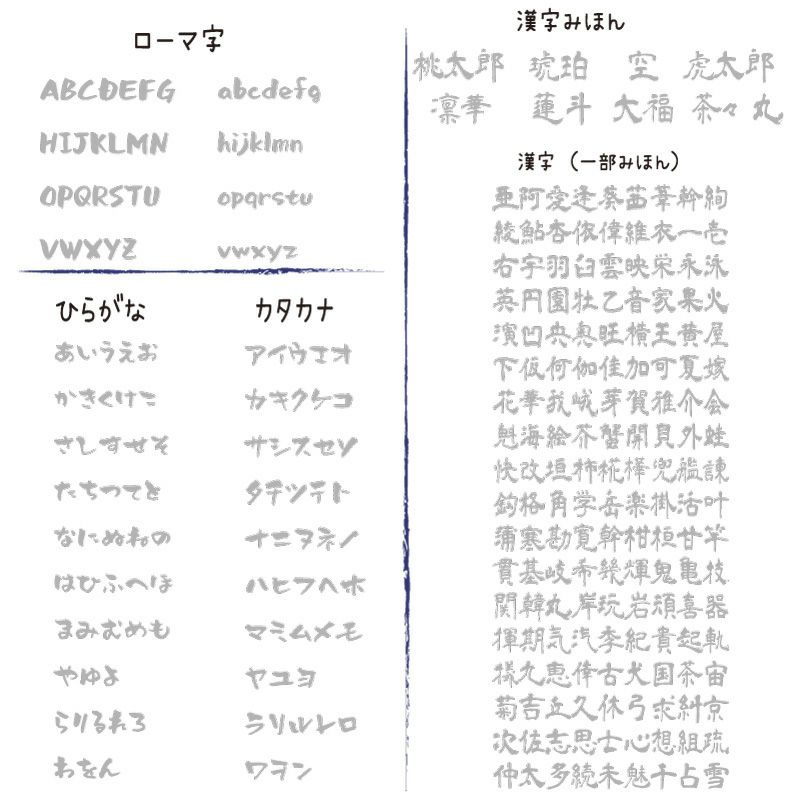 ローマ字
ABCDEFG abcdefg
HIJKLMN hijklmn
OPQRSTU opqrstu
VWXYZ vwxyz
ひらがな
あいうえお
かきくけこ
さしすせそ
たちつてと
なにぬねの
はひふへほ
まみむめも
やゆよ
らりるれろ
わをん
カタカナ
アイウエオ
カキクケコ
サシスセソ
タチツテト
ナニヌネノ
ハヒフヘホ
マミムメモ
ヤユヨ
ラリルレロ
ワヲン
漢字みほん
桃太郎 琥珀 空 虎太郎
凛華 蓮斗 大福 茶々丸
漢字(一部みほん)
亜阿愛逢葵茜葦幹絢
綾鮎杏依偉維衣一壱
右宇羽臼雲映栄永泳
英円園牡乙音家果火
濱凹央奥旺横王黄屋
下仮何伽佳加可夏嫁
花華我峨芽賀雅介会
魁海絵芥蟹開貝外蛙
快改垣柿椛樺兜艦諫
鈎格角学岳楽掛活叶
蒲寒勘寛幹柑桓甘竿
貫基岐希祭輝鬼亀技
関韓丸岸玩岩頑喜器
揮期気汽季紀貴起軌
犠九恵倖古犬国茶宙
菊吉丘久休弓求糾京
次佐志思士心想組疏
仲太多続未魅千占雪